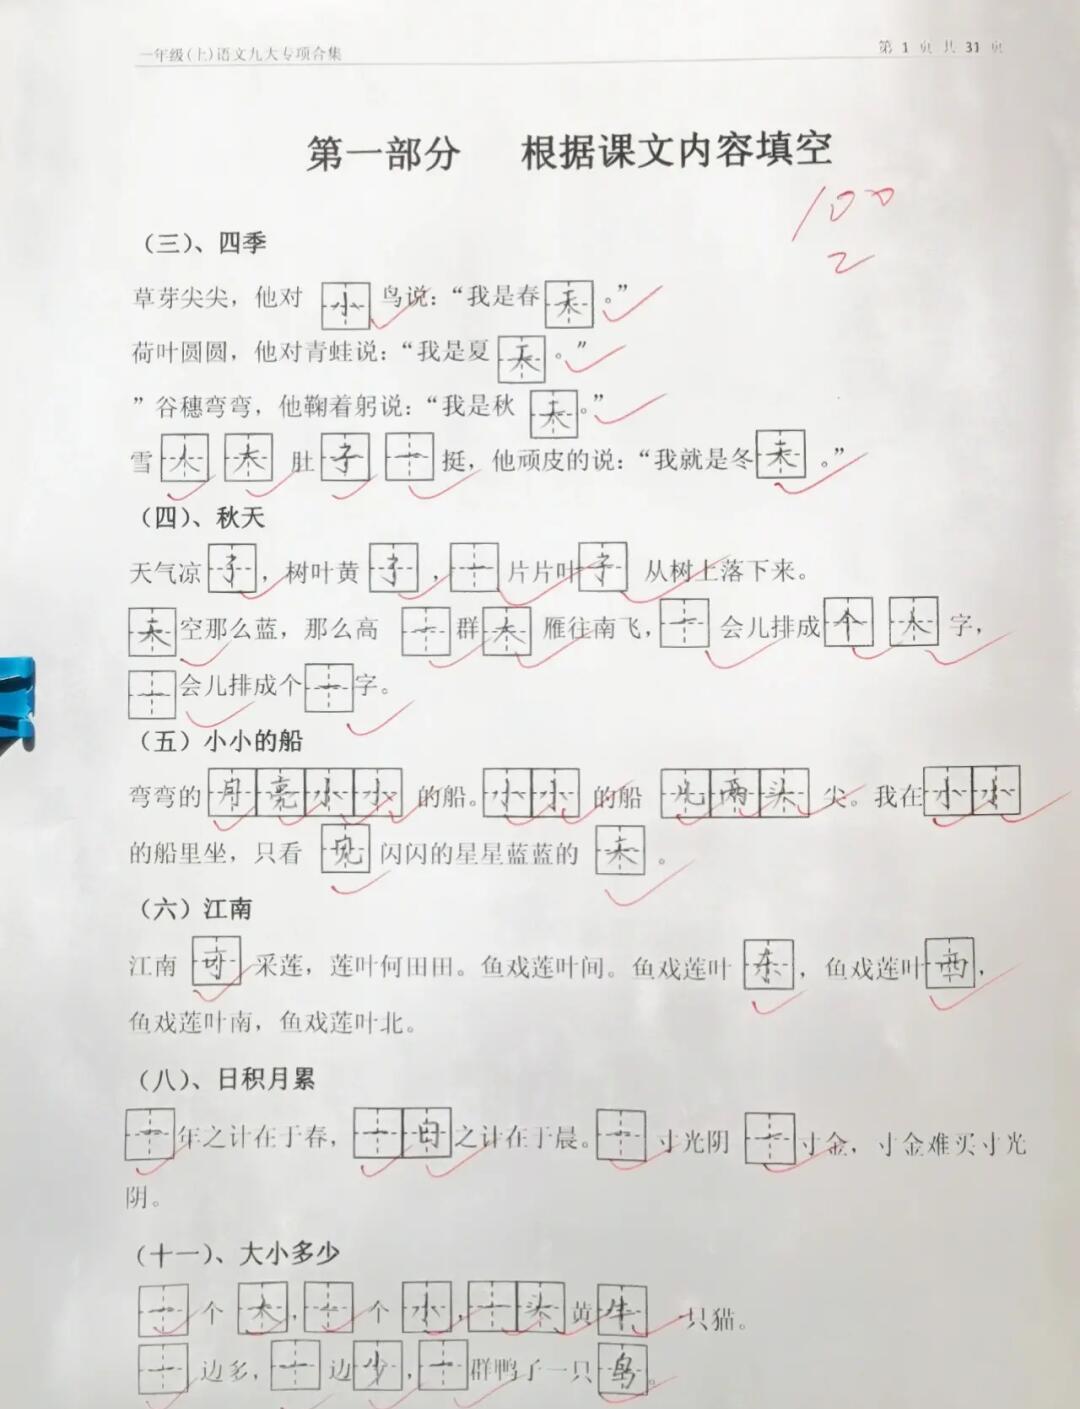 一年级(上)语文九大专项合集 第 1 页 共 31 页
第一部分 根据课文内容填空
100
2
（三）、四季
草芽尖尖，他对 小 鸟说：“我是春 天 。”
荷叶圆圆，他对青蛙说：“我是夏 天 。”
”谷穗弯弯，他鞠着躬说：“我是秋 天 。”
雪 人 大 肚 子 一 挺，他顽皮的说：“我就是冬 天 。”
（四）、秋天
天气凉 了 ，树叶黄 了 ，一 片片叶 子 从树上落下来。
天 空那么蓝，那么高 一 群 大 雁往南飞，一 会儿排成 个 人 字，
一 会儿排成个 一 字。
（五）小小的船
弯弯的 月亮小小 的船。小小 的船 儿两头 尖。我在 小小
的船里坐，只看 见 闪闪的星星蓝蓝的 天 。
（六）江南
江南 可 采莲，莲叶何田田。鱼戏莲叶间。鱼戏莲叶 东 ，鱼戏莲叶 西 ，
鱼戏莲叶南，鱼戏莲叶北。
（八）、日积月累
一 年之计在于春，一日 之计在于晨。一 寸光阴 一 寸金，寸金难买寸光
阴。
（十一）、大小多少
一 个 大，一 个 小，一头 黄 牛 一只猫。
一 边多，一 边 少，一 群鸭子一只 鸟 。